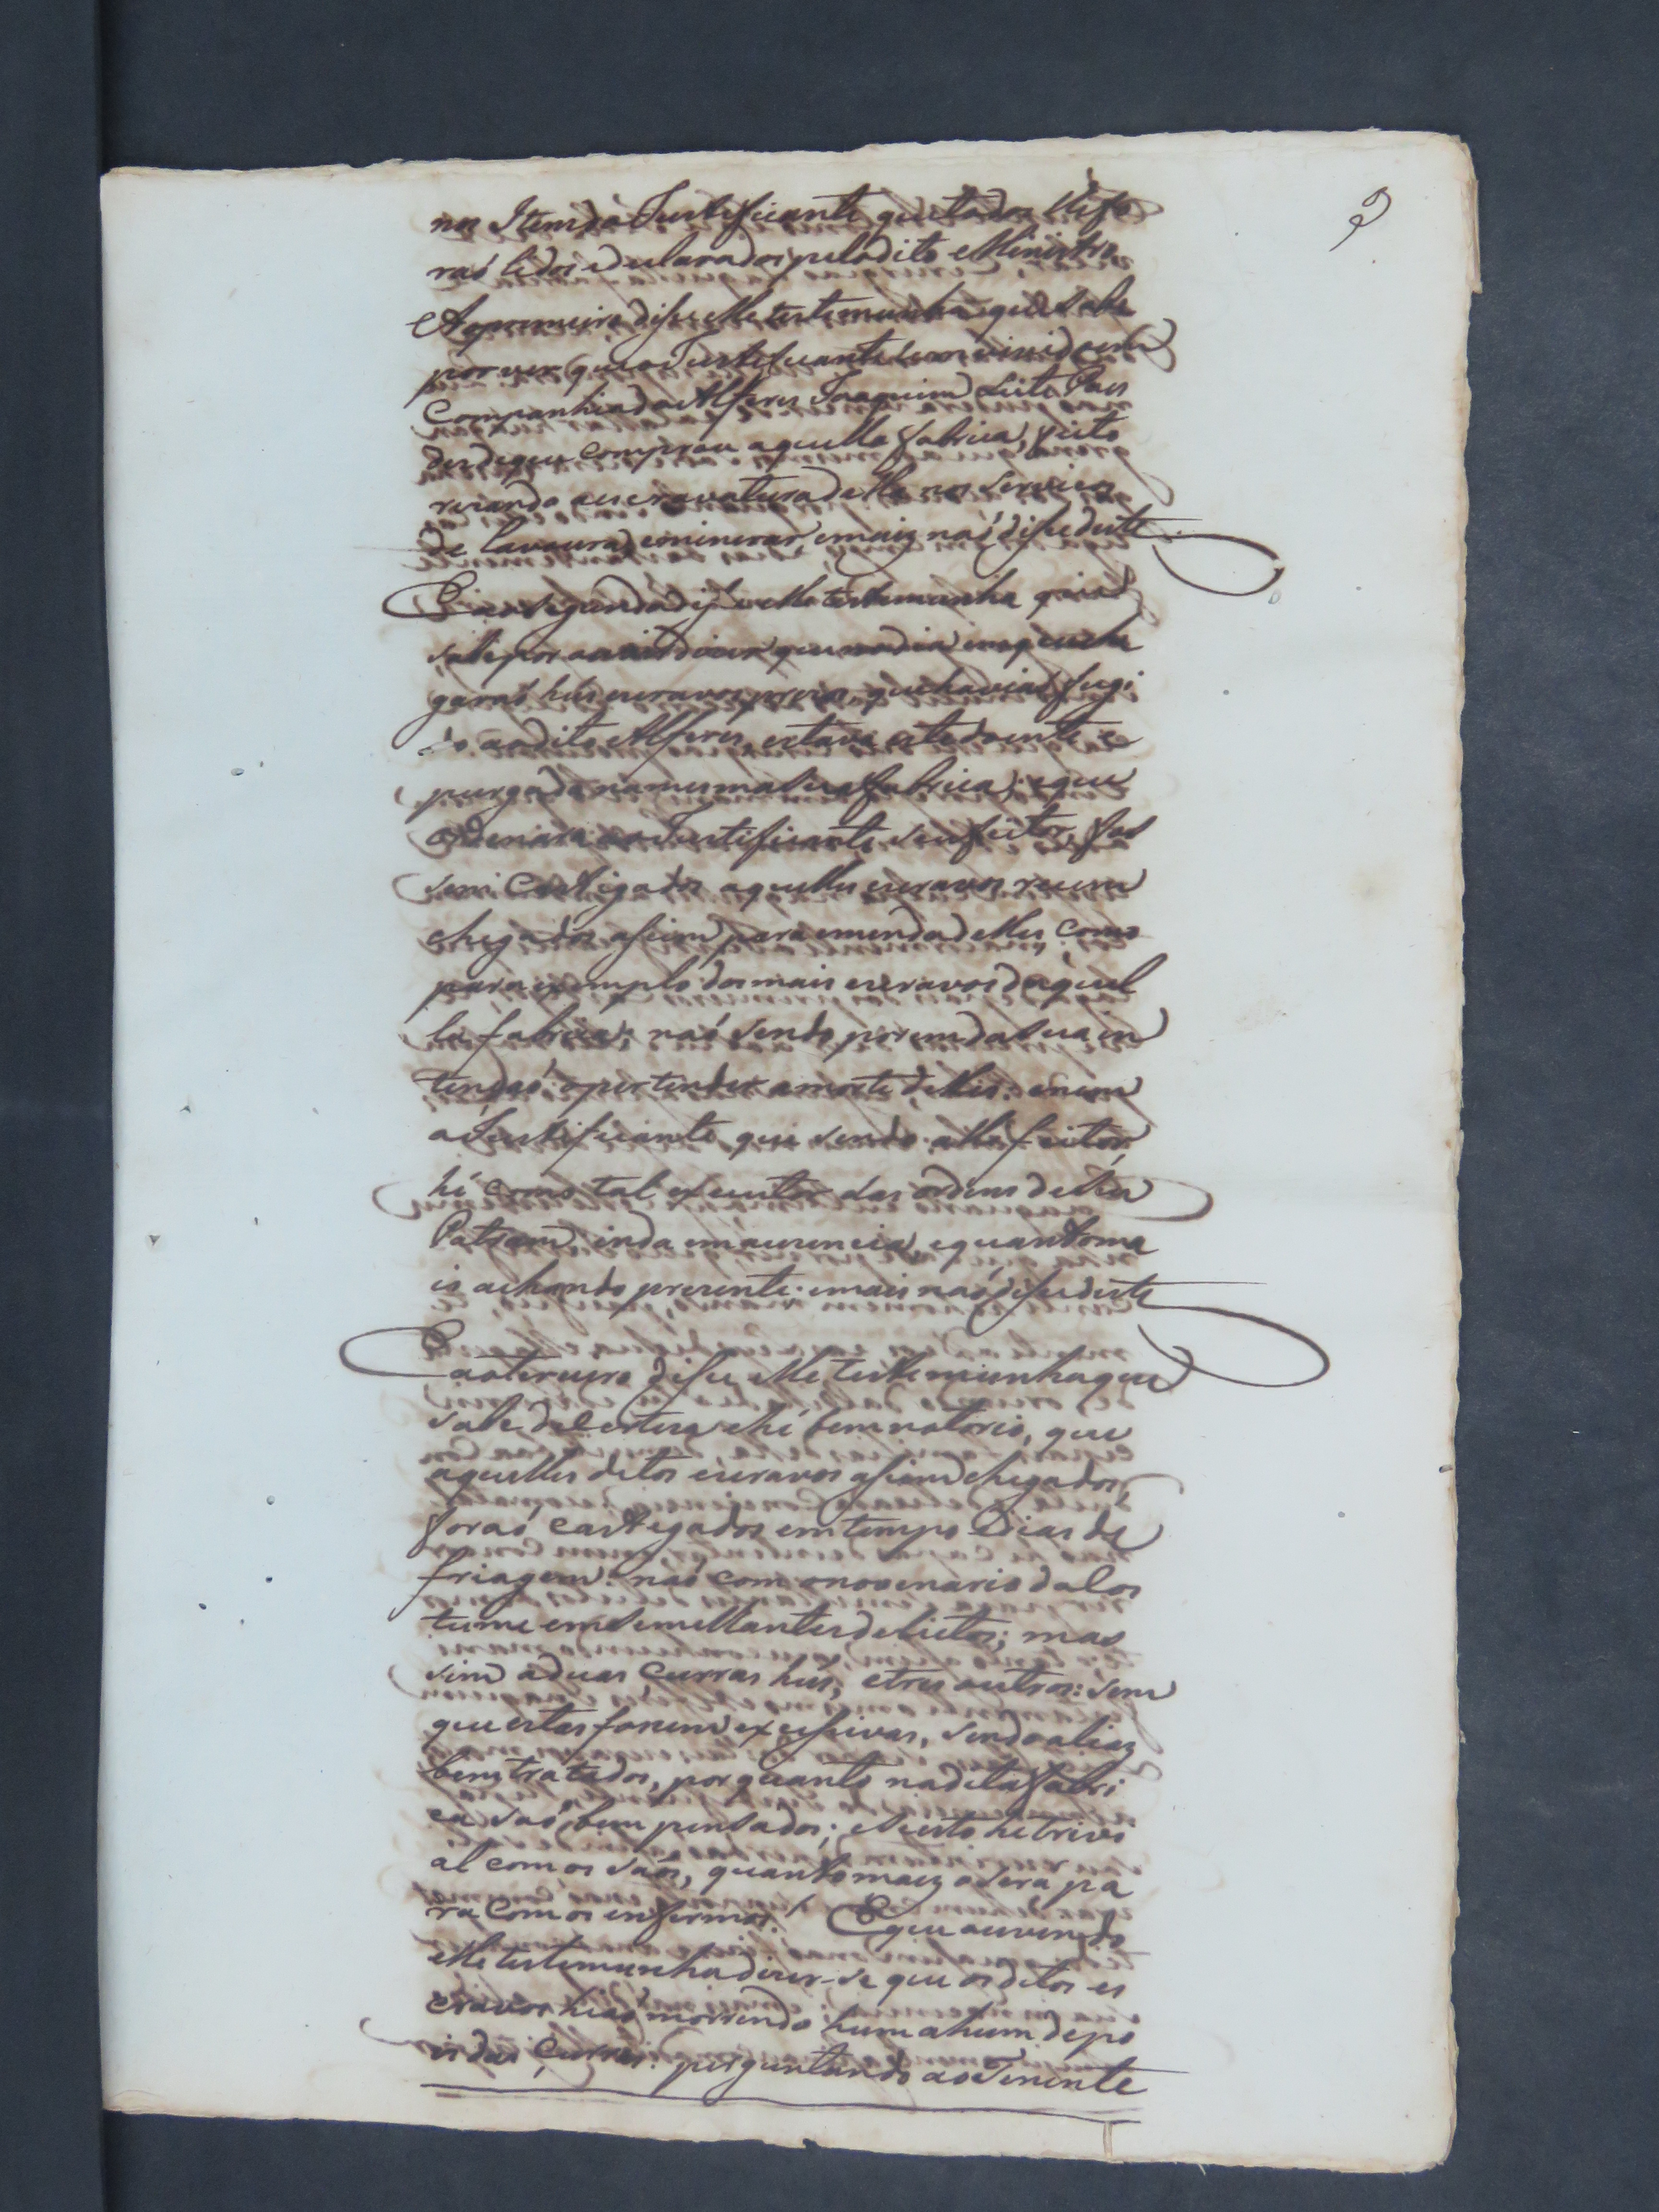 9
nos Itens do Justificante que todos lhe fo
raó lidos e declarados pelo dito Ministro
Ao primeiro disse elle testemunha que sabe
por ver que o Justificante tem vivido em
Companhia do Alferes Joaquim Leite Paes
desde que comprou aquella fabrica, feito
rizando a escravatura della nos serviços
de lavoura, e minerar e mais naó disse deste
E ao segundo disse elle testemunha que
sabe por ouvir dizer que no dia em que che
garaó huns escravos prezos, que haviaó fugi
do ao dito Alferes, estava este doente e
purgado na mesma sua fabrica; e que
ordenara ao Justificante seu feitor, fos
sem Castigados aquelles escravos recem
chegados assim para emenda delles, como
para exemplo dos mais escravos daquel
la fabrica; naó sendo porem da sua in
tençaó o pertender a morte delles: e nem
o Justificante, que sendo alli feitor,
hé como tal executor das ordens de seu
Patram, inda em auzencia, e quanto ma
is achando prezente: e mais naó disse deste
E ao terceiro disse elle testemunha que
sabe de certeza e hé bem notorio, que
aquelles ditos escravos assim chegados,
foraó castigados em tempo e dias de
friagem: naó com o novenario do Cos
tume em semelhantes delictos; mas
sim a duas Curras huns, e tres outros: sem
que estas fossem excessivas, sendo alias
bem tratados, por quanto na dita fabri
ca saó bem pensados; e se isto he trivi
al com os sãos, quanto mais o será pa
ra com os enfermos. E que ouvindo
elle testemunha dizer-se que os ditos es
cravos hiaó morrendo hum a hum depo
is das Curras: perguntando ao Tenente